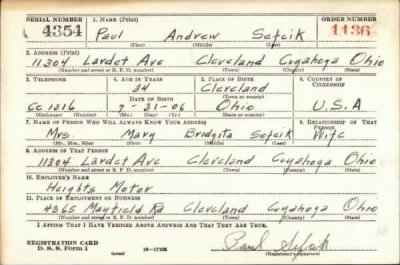 SERIAL NUMBER 1. NAME (Print) ORDER NUMBER
4354 Paul Andrew Sefcik 1136
(First) (Middle) (Last)
2. ADDRESS (Print)
11304 Lardet Ave Cleveland Cuyahoga Ohio
(Number and street or R. F. D. number) (Town) (County) (State)
3. TELEPHONE 4. AGE IN YEARS 5. PLACE OF BIRTH 6. COUNTRY OF CITIZENSHIP
34 Cleveland
DATE OF BIRTH (Town or county)
1316 7-31-06 Ohio U.S.A
(Exchange) (Number) (Mo.) (Day) (Yr.) (State or country)
7. NAME OF PERSON WHO WILL ALWAYS KNOW YOUR ADDRESS 8. RELATIONSHIP OF THAT PERSON
Mrs. Mary Bridgita Sefcik Wife
(Mr., Mrs., Miss) (First) (Middle) (Last)
9. ADDRESS OF THAT PERSON
11304 Lardet Ave Cleveland Cuyahoga Ohio
(Number and street or R. F. D. number) (Town) (County) (State)
10. EMPLOYER'S NAME
Heights Motor
11. PLACE OF EMPLOYMENT OR BUSINESS
4365 Mayfield Rd Cleveland Cuyahoga Ohio
(Number and street or R. F. D. number) (Town) (County) (State)
I AFFIRM THAT I HAVE VERIFIED ABOVE ANSWERS AND THAT THEY ARE TRUE.
REGISTRATION CARD
D. S. S. Form 1 (over) Paul Sefcik
(Registrant's signature)